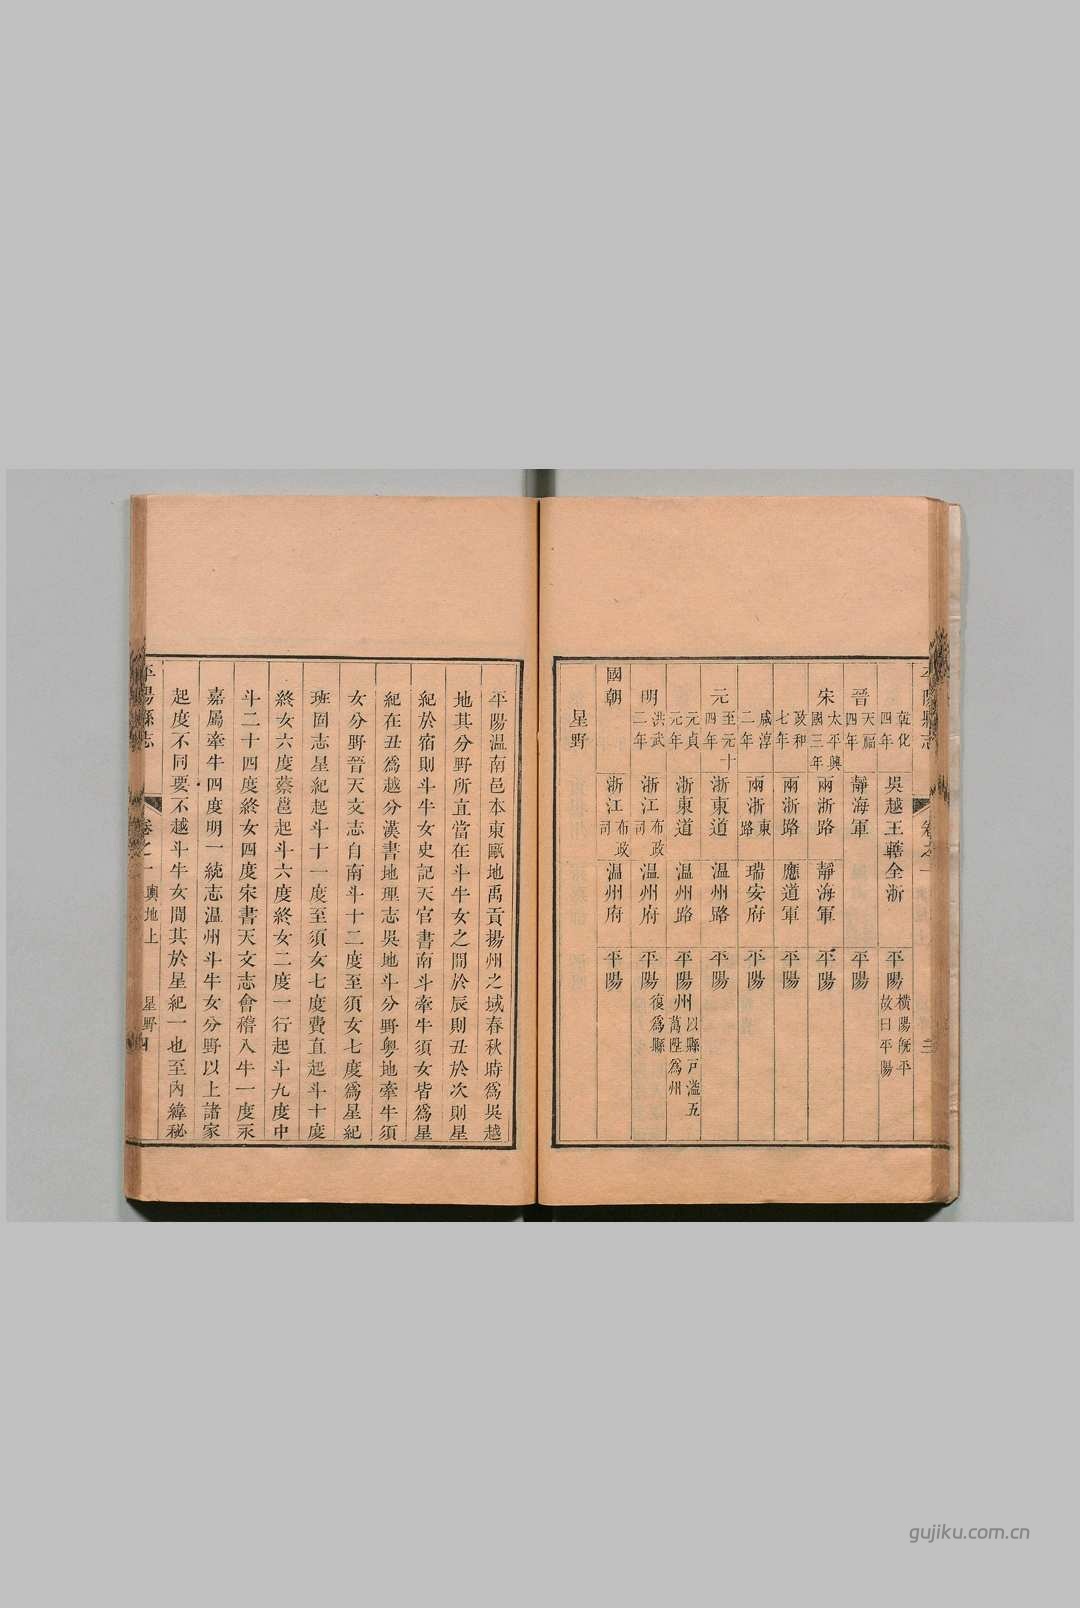 平陽縣志
卷之一
三
乾化四年 吳越王轄全浙 平陽 橫陽既平故曰平陽
晉 天福四年 靜海軍 平陽
宋 太平興國三年 兩浙路 靜海軍 平陽
政和七年 兩浙路 應道軍 平陽
咸淳二年 兩浙東路 瑞安府 平陽
元 至元十四年 浙東道 温州路 平陽
元貞元年 浙東道 温州路 平陽州 以縣戸溢五萬陞為州
明 洪武二年 浙江布政司 温州府 平陽 復為縣
國朝 浙江司 温州府 平陽
星野
平陽温南邑本東甌地禹貢揚州之域春秋時為吳越
地其分野所直當在斗牛女之間於辰則丑於次則星
紀於宿則斗牛女史記天官書南斗牽牛須女皆為星
紀在丑為越分漢書地理志吳地斗分野粵地牽牛須
女分野晉天文志自南斗十二度至須女七度為星紀
班固志星紀起斗十一度至須女七度費直起斗十度
終女六度蔡邕起斗六度終女二度一行起斗九度中
斗二十四度終女四度宋書天文志會稽入牛一度永
嘉屬牽牛四度明一統志温州斗牛女分野以上諸家
起度不同要不越斗牛女間其於星紀一也至內緯秘
平陽縣志
卷之一 輿地上 星野 四
gujiku.com.cn